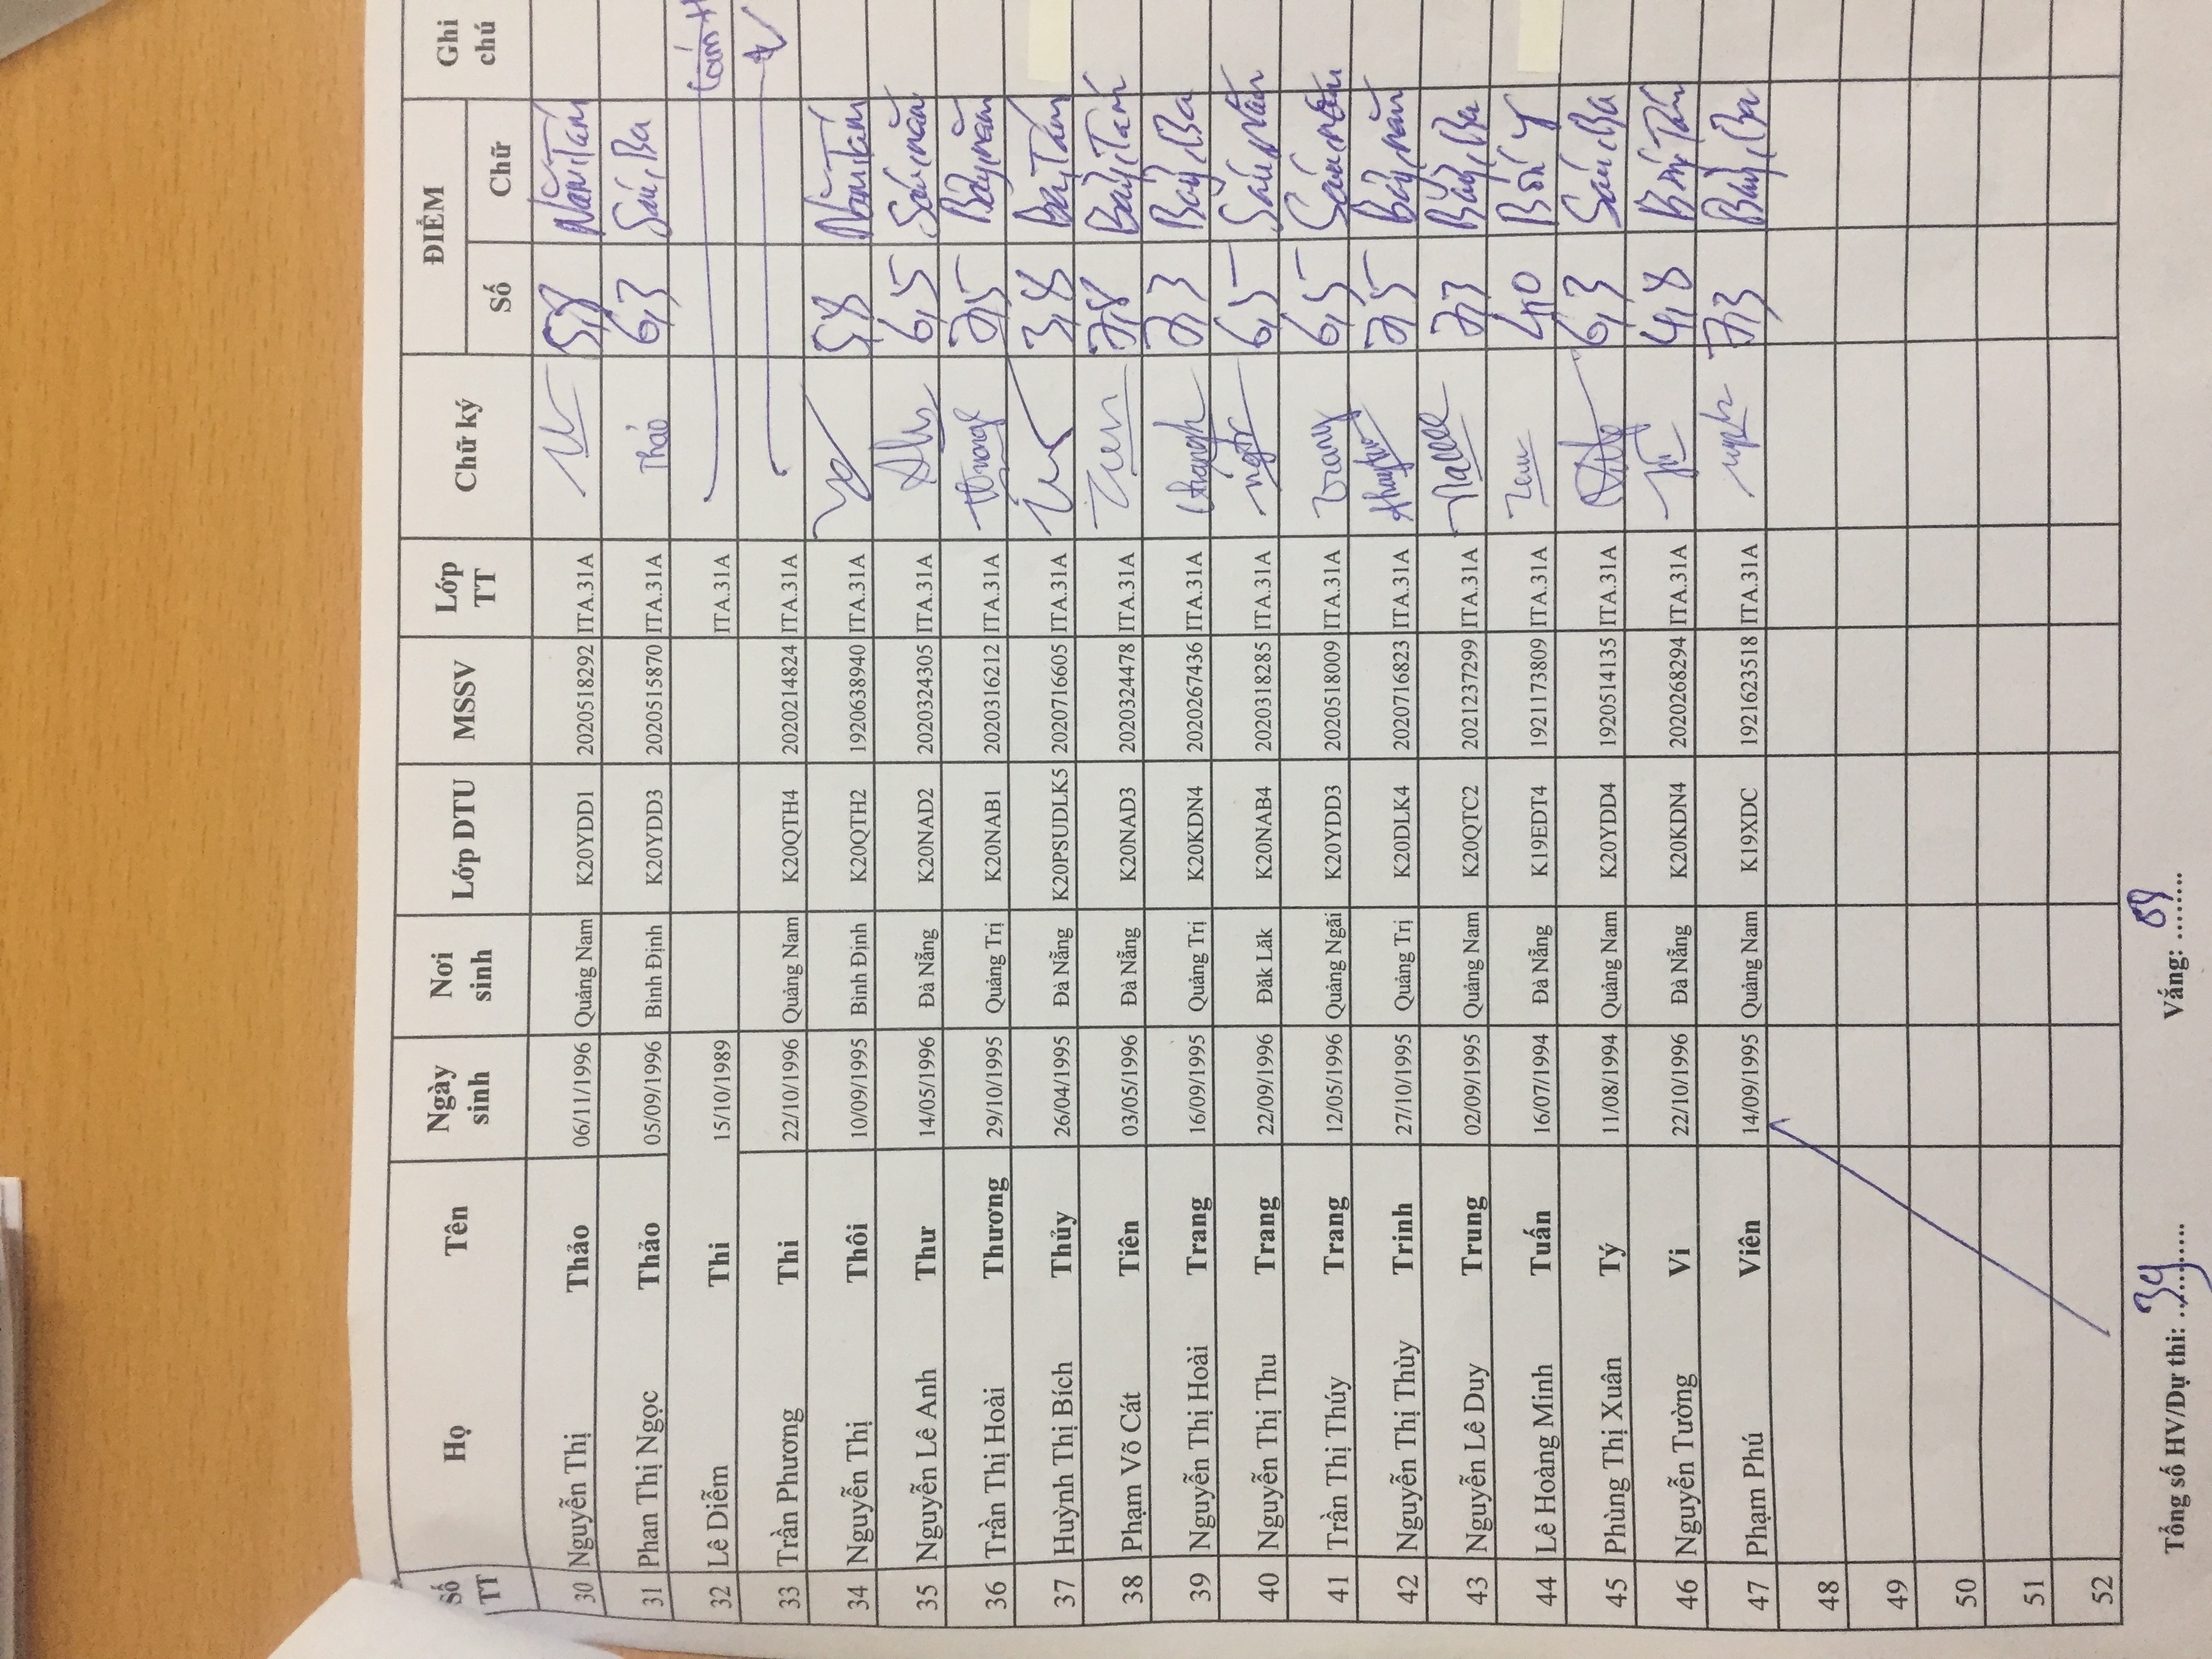 Số TT Họ Tên Ngày sinh Nơi sinh Lớp DTU MSSV Lớp TT Chữ ký ĐIỂM Ghi chú
Số Chữ
30 Nguyễn Thị Thảo 06/11/1996 Quảng Nam K20YDD1 2020518292 ITA.31A 5,8 Năm,Tám
31 Phan Thị Ngọc Thảo 05/09/1996 Bình Định K20YDD3 2020515870 ITA.31A Thảo 6,3 Sáu,Ba
32 Lê Diễm Thi 15/10/1989 ITA.31A
33 Trần Phương Thi 22/10/1996 Quảng Nam K20QTH4 2020214824 ITA.31A
34 Nguyễn Thị Thôi 10/09/1995 Bình Định K20QTH2 1920638940 ITA.31A 5,8 Năm,Tám
35 Nguyễn Lê Anh Thư 14/05/1996 Đà Nẵng K20NAD2 2020324305 ITA.31A 6,5 Sáu,năm
36 Trần Thị Hoài Thương 29/10/1995 Quảng Trị K20NAB1 2020316212 ITA.31A Thương 7,5 Bảy,năm
37 Huỳnh Thị Bích Thủy 26/04/1995 Đà Nẵng K20PSUDLK5 2020716605 ITA.31A 3,8 Ba,Tám
38 Phạm Võ Cát Tiên 03/05/1996 Đà Nẵng K20NAD3 2020324478 ITA.31A 7,8 Bảy,Tám
39 Nguyễn Thị Hoài Trang 16/09/1995 Quảng Trị K20KDN4 2020267436 ITA.31A 7,3 Bảy,Ba
40 Nguyễn Thị Thu Trang 22/09/1996 Đăk Lăk K20NAB4 2020318285 ITA.31A 6,5 Sáu,Năm
41 Trần Thị Thúy Trang 12/05/1996 Quảng Ngãi K20YDD3 2020518009 ITA.31A Trang 6,5 Sáu,năm
42 Nguyễn Thị Thùy Trinh 27/10/1995 Quảng Trị K20DLK4 2020716823 ITA.31A 7,5 Bảy,năm
43 Nguyễn Lê Duy Trung 02/09/1995 Quảng Nam K20QTC2 2021237299 ITA.31A 7,3 Bảy,Ba
44 Lê Hoàng Minh Tuấn 16/07/1994 Đà Nẵng K19EDT4 1921173809 ITA.31A 4,0 Bốn
45 Phùng Thị Xuân Tý 11/08/1994 Quảng Nam K20YDD4 1920514135 ITA.31A 6,3 Sáu,Ba
46 Nguyễn Tường Vi 22/10/1996 Đà Nẵng K20KDN4 2020268294 ITA.31A 4,8 Bốn,Tám
47 Phạm Phú Viên 14/09/1995 Quảng Nam K19XDC 1921623518 ITA.31A 7,3 Bảy,Ba
48
49
50
51
52
Tổng số HV/Dự thi: ...39... Vắng: ...